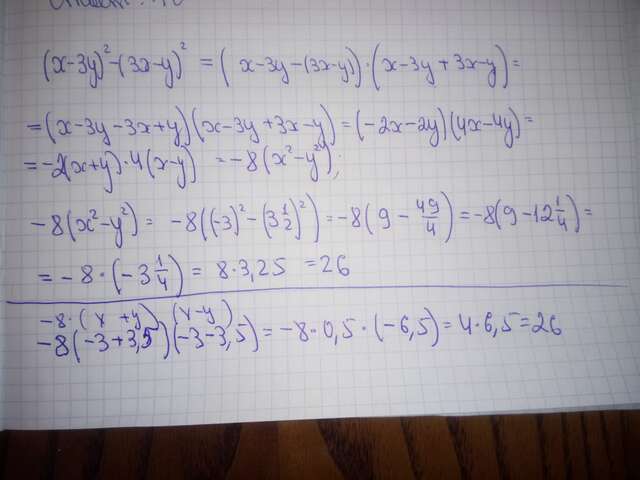 (x-3y)² - (3x-y)² = (x-3y-(3x-y))·(x-3y+3x-y) =
= (x-3y-3x+y)(x-3y+3x-y) = (-2x-2y)(4x-4y) =
= -2(x+y)·4(x-y) = -8(x²-y²);
-8(x²-y²) = -8((-3)²-(3 1/2)²) = -8(9 - 49/4) = -8(9-12 1/4) =
= -8·(-3 1/4) = 8·3,25 = 26
-8·(x+y)(x-y)
-8(-3+3,5)(-3-3,5) = -8·0,5·(-6,5) = 4·6,5 = 26